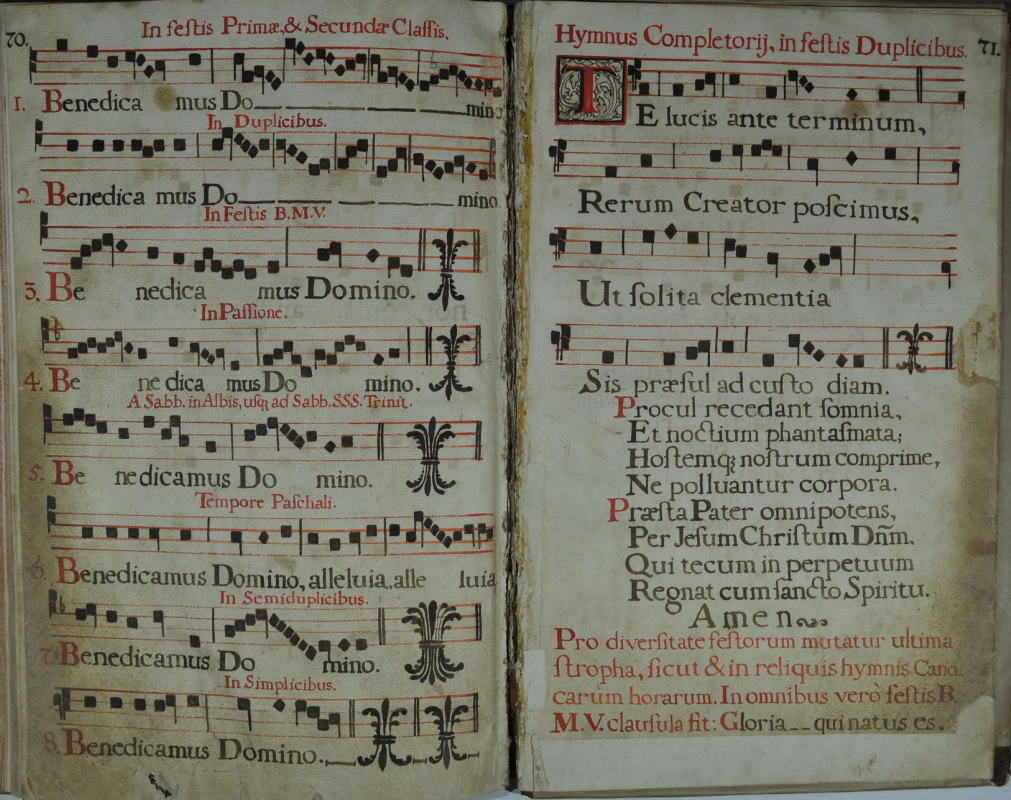 70.
In festis Primæ, & Secundæ Classis.
1. Benedica mus Do mino
In Duplicibus.
2. Benedica mus Do mino
In Festis B.M.V.
3. Be nedica mus Domino.
In Passione.
4. Be ne dica mus Do mino.
A Sabb. in Albis, usq; ad Sabb. SSS. Trinit.
5. Be nedicamus Do mino.
Tempore Paschali.
6. Benedicamus Domino, alleluia, alle luia
In Semiduplicibus.
7. Benedicamus Do mino.
In Simplicibus.
8. Benedicamus Domino.
71.
Hymnus Completorij, in festis Duplicibus.
TE lucis ante terminum,
Rerum Creator poscimus,
Ut solita clementia
Sis præsul ad custo diam.
Procul recedant somnia,
Et noctium phantasmata;
Hostemq; nostrum comprime,
Ne polluantur corpora.
Præsta Pater omnipotens,
Per Jesum Christum Dñm.
Qui tecum in perpetuum
Regnat cum sancto Spiritu.
Amen
Pro diversitate festorum mutatur ultima
stropha, sicut & in reliquis hymnis Cano
carum horarum. In omnibus verò festis B.
M.V. clausula fit: Gloria -- qui natus es.